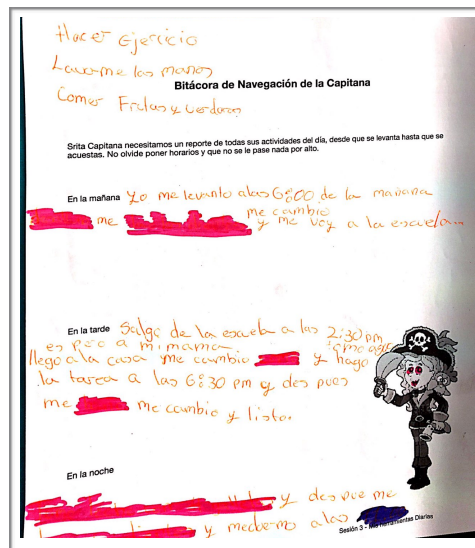 Hacer Ejercicio
Lavarme las manos
Comer Frutas y verduras
Bitácora de Navegación de la Capitana
Srita Capitana necesitamos un reporte de todas sus actividades del día, desde que se levanta hasta que se
acuestas. No olvide poner horarios y que no se le pase nada por alto.
En la mañana yo me levanto alas 6:00 de la mañana
me cambio
me y me voy a la escuela
En la tarde Salgo de la escuela a las 2:30 pm
a mi mama tomo agua
llego a la casa me cambio y hago
la tarea a las 6:30 pm y des pues
me me cambio y listo.
En la noche
y des pue me
y me alas
Sesión 3 - Herramientas Diarias